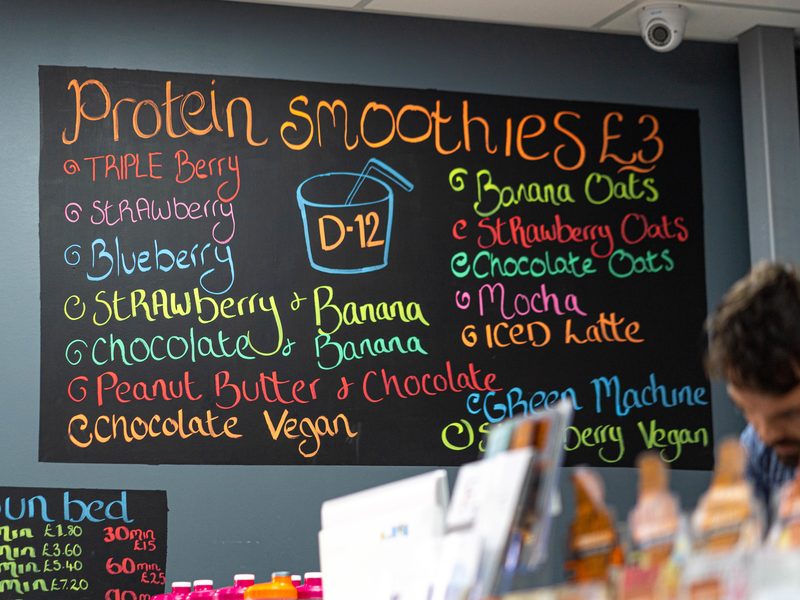 Protein smoothies £3
TRIPLE Berry
StRAWberry
Blueberry
StRAWberry & Banana
Chocolate & Banana
Peanut Butter & Chocolate
Chocolate Vegan
D-12
Banana Oats
StRawberry Oats
Chocolate Oats
Mocha
ICED Latte
GReen Machine
Vegan
bed
£1.80
£3.60
£5.40
min £7.20
30min
£15
60min
£25